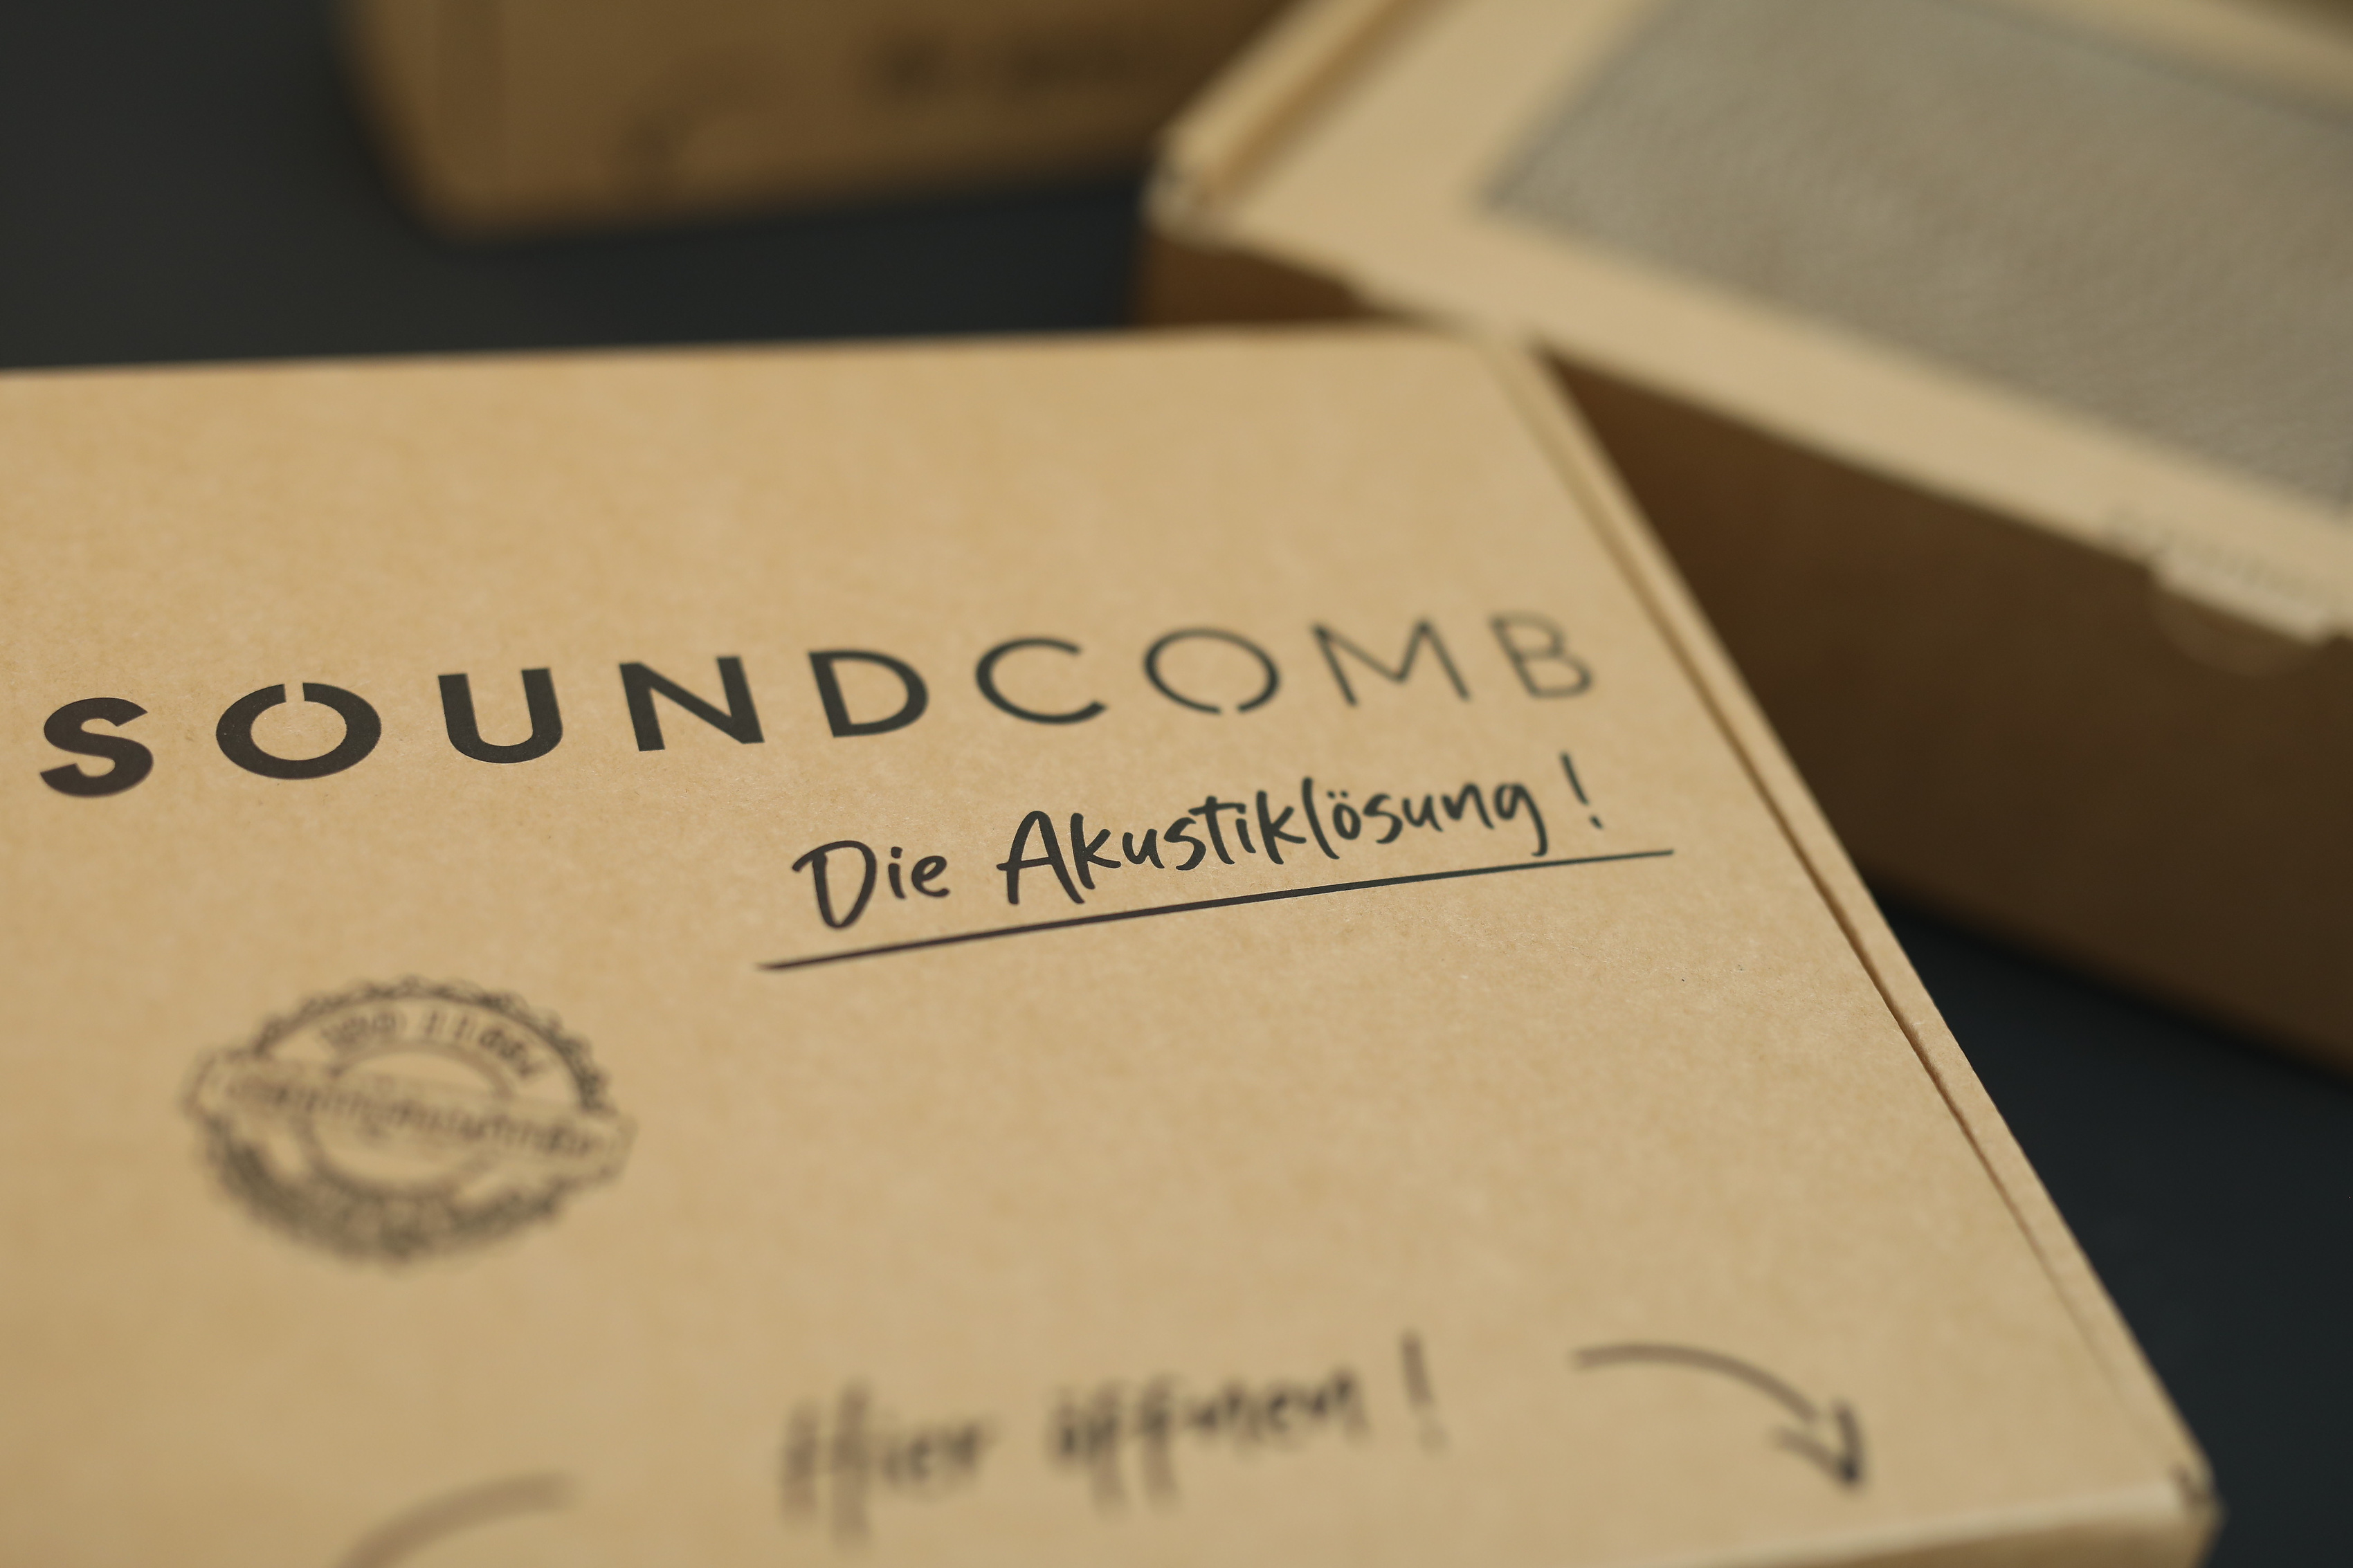 SOUNDCOMB
Die Akustiklösung!
Hier öffnen!